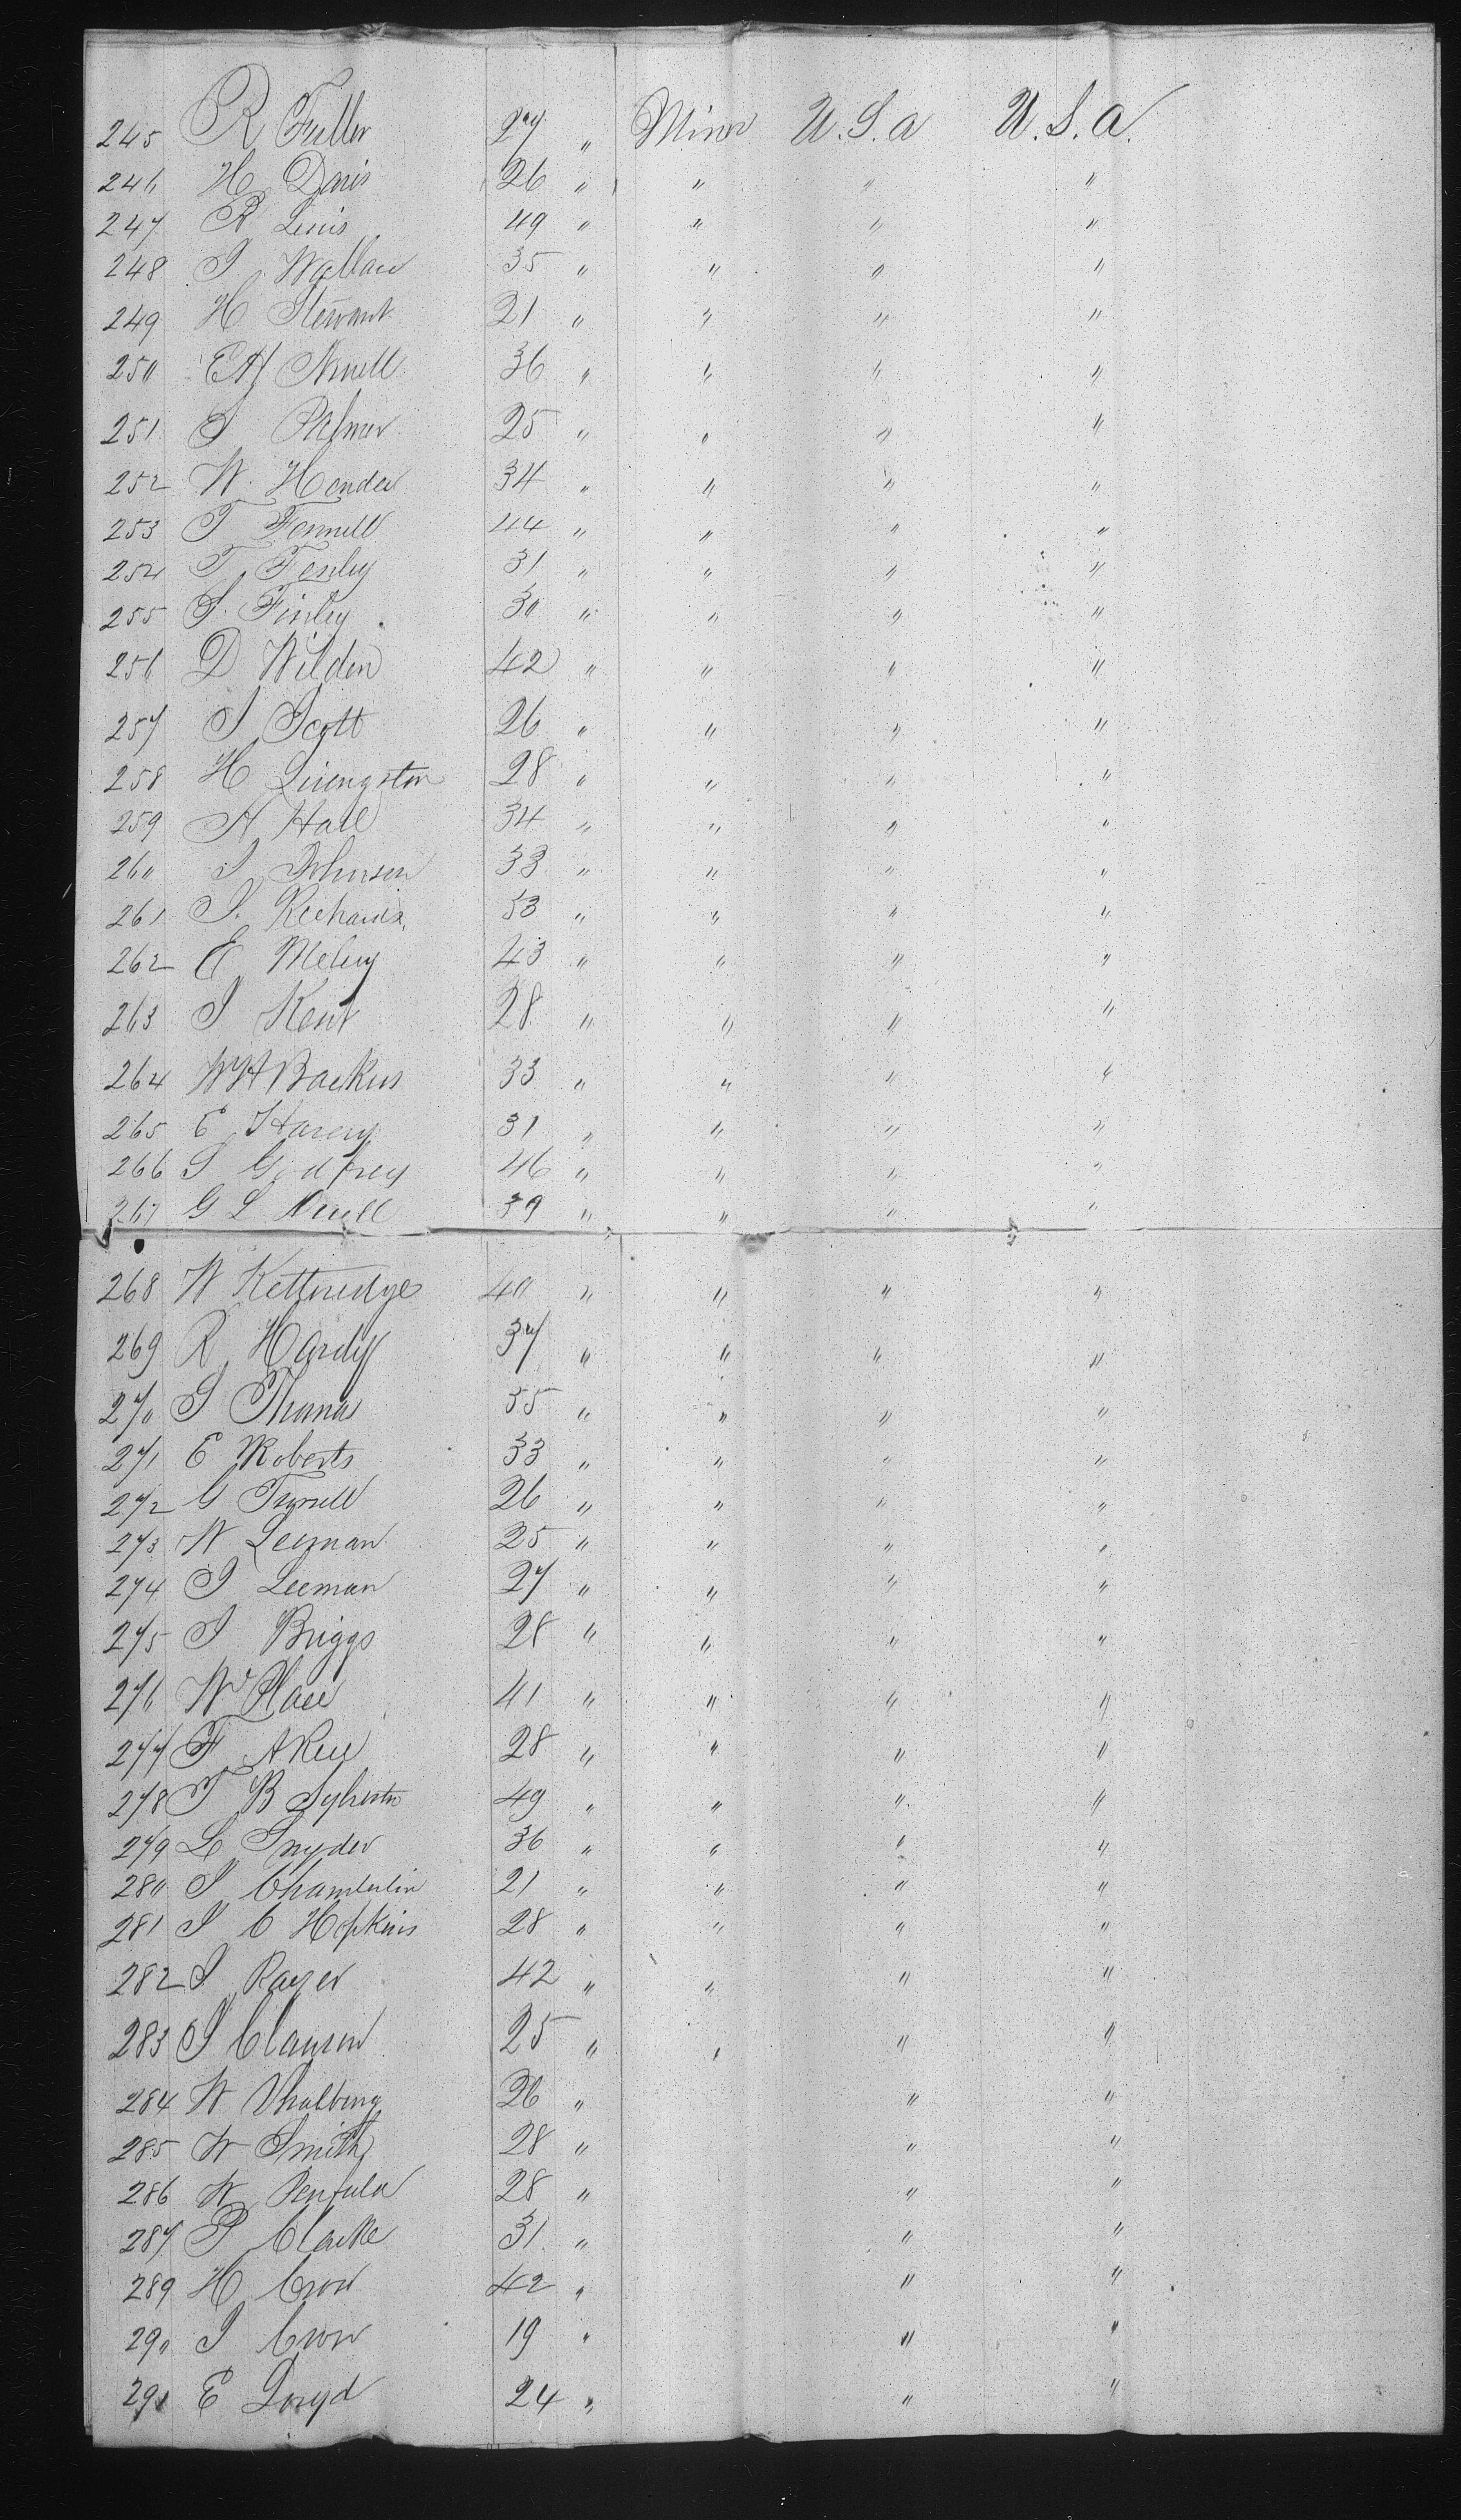 245 R Fuller 27 " Miner U.S.a U.S.a.
246 H Davis 26 " " " "
247 R Lewis 49 " " " "
248 J Wallace 35 " " " "
249 H Stewart 21 " " " "
250 E H Newell 36 " " " "
251 J Palmer 25 " " " "
252 W. 34 " " " "
253 T 44 " " " "
254 T 31 " " " "
255 S. Finley 30 " " " "
256 D Wilden 42 " " " "
257 J Scott 26 " " " "
258 H Livengston 28 " " " "
259 A Hall 34 " " " "
260 J Johnson 33 " " " "
261 J. 53 " " " "
262 E 43 " " " "
263 J Kent 28 " " " "
264 W H Backus 33 " " " "
265 E Harvey 31 " " " "
266 S Godfrey 46 " " " "
267 G L 39 " " " "
268 W Kettredge 40 " " " "
269 R Hardy 37 " " " "
270 S 35 " " " "
271 E Roberts 33 " " " "
272 G Tyrrell 26 " " " "
273 W Leeman 25 " " " "
274 J Leeman 27 " " " "
275 J Briggs 28 " " " "
276 Wm Place 41 " " " "
277 F 28 " " " "
278 T B Sylvester 49 " " " "
279 L Snyder 36 " " " "
280 J Chamberlin 21 " " " "
281 J C Hopkins 28 " " " "
282 J 42 " " " "
283 J Clawson 25 " " " "
284 W 26 " " "
285 W Smith 28 " " "
286 W 28 " " "
287 P Clarke 31 " " "
289 H Crow 42 " " "
290 J Crow 19 " " "
291 E Loryd 24 " " "